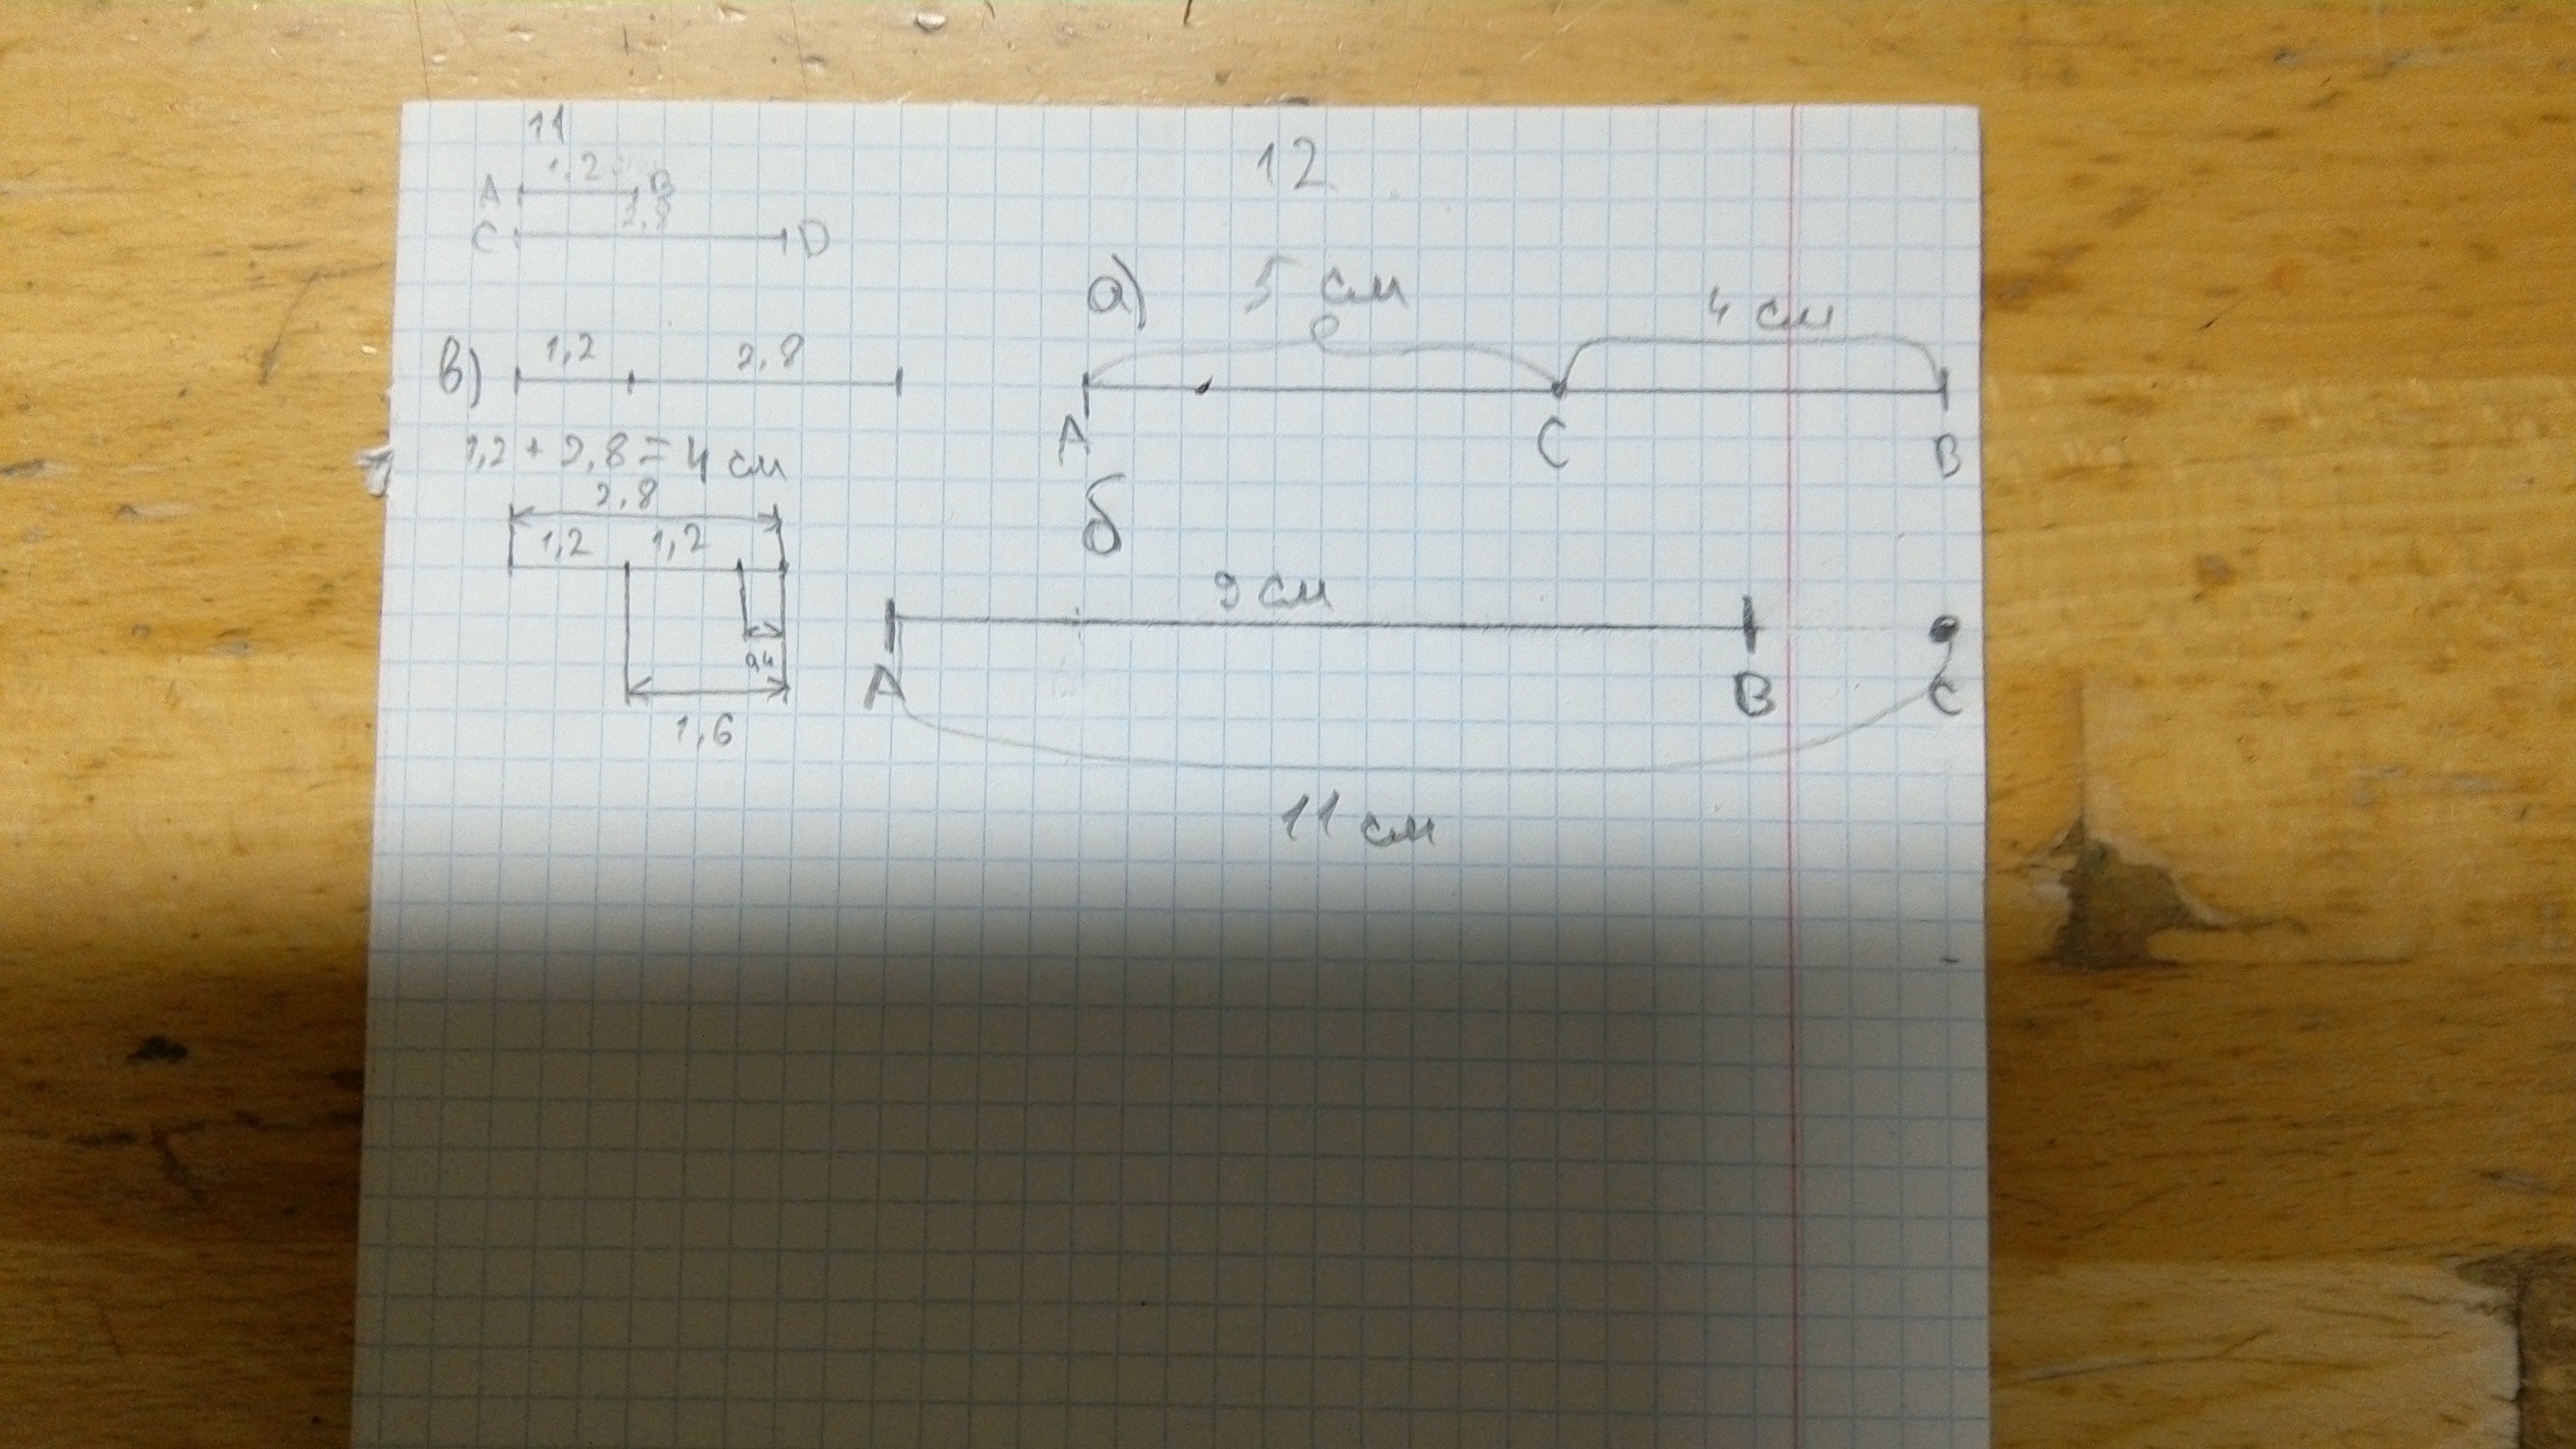 11
1,2
A B
2,8
C D
в) 1,2 2,8
1,2 + 2,8 = 4 см
2,8
1,2 1,2
0,4
1,6
12
а) 5 см 4 см
A C B
б
9 см
A B C
11 см